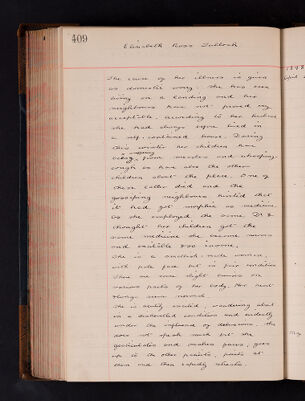 409
Elizabeth Ross Tulloch
The cause of her illness is given
as domestic worry. She has been
living on a landing and her
neighbours have not proved very
acceptable. According to her husband
she had always before lived in
a self-contained house. During
this winter her children have
been suffering from measles and whooping
cough as have also the other
children about the place. One of
these latter died and the
gossiping neighbours hinted that
it had got morphia as medicine.
As she employed the same Dr &
thought her children got the
same medicine she became nervous
and excitable & so insane.
She is a smallish made woman,
with pale face but in fair condition
There are some slight bruises on
various parts of her body. Her heart
& lungs seem normal.
She is acutely excited, wandering about
in a distracted condition and evidently
under the influence of delusions. She
does not speak much but she
gesticulates and makes faces, goes
up to the other patients, points at
them and then rapidly retreats.
1898
May